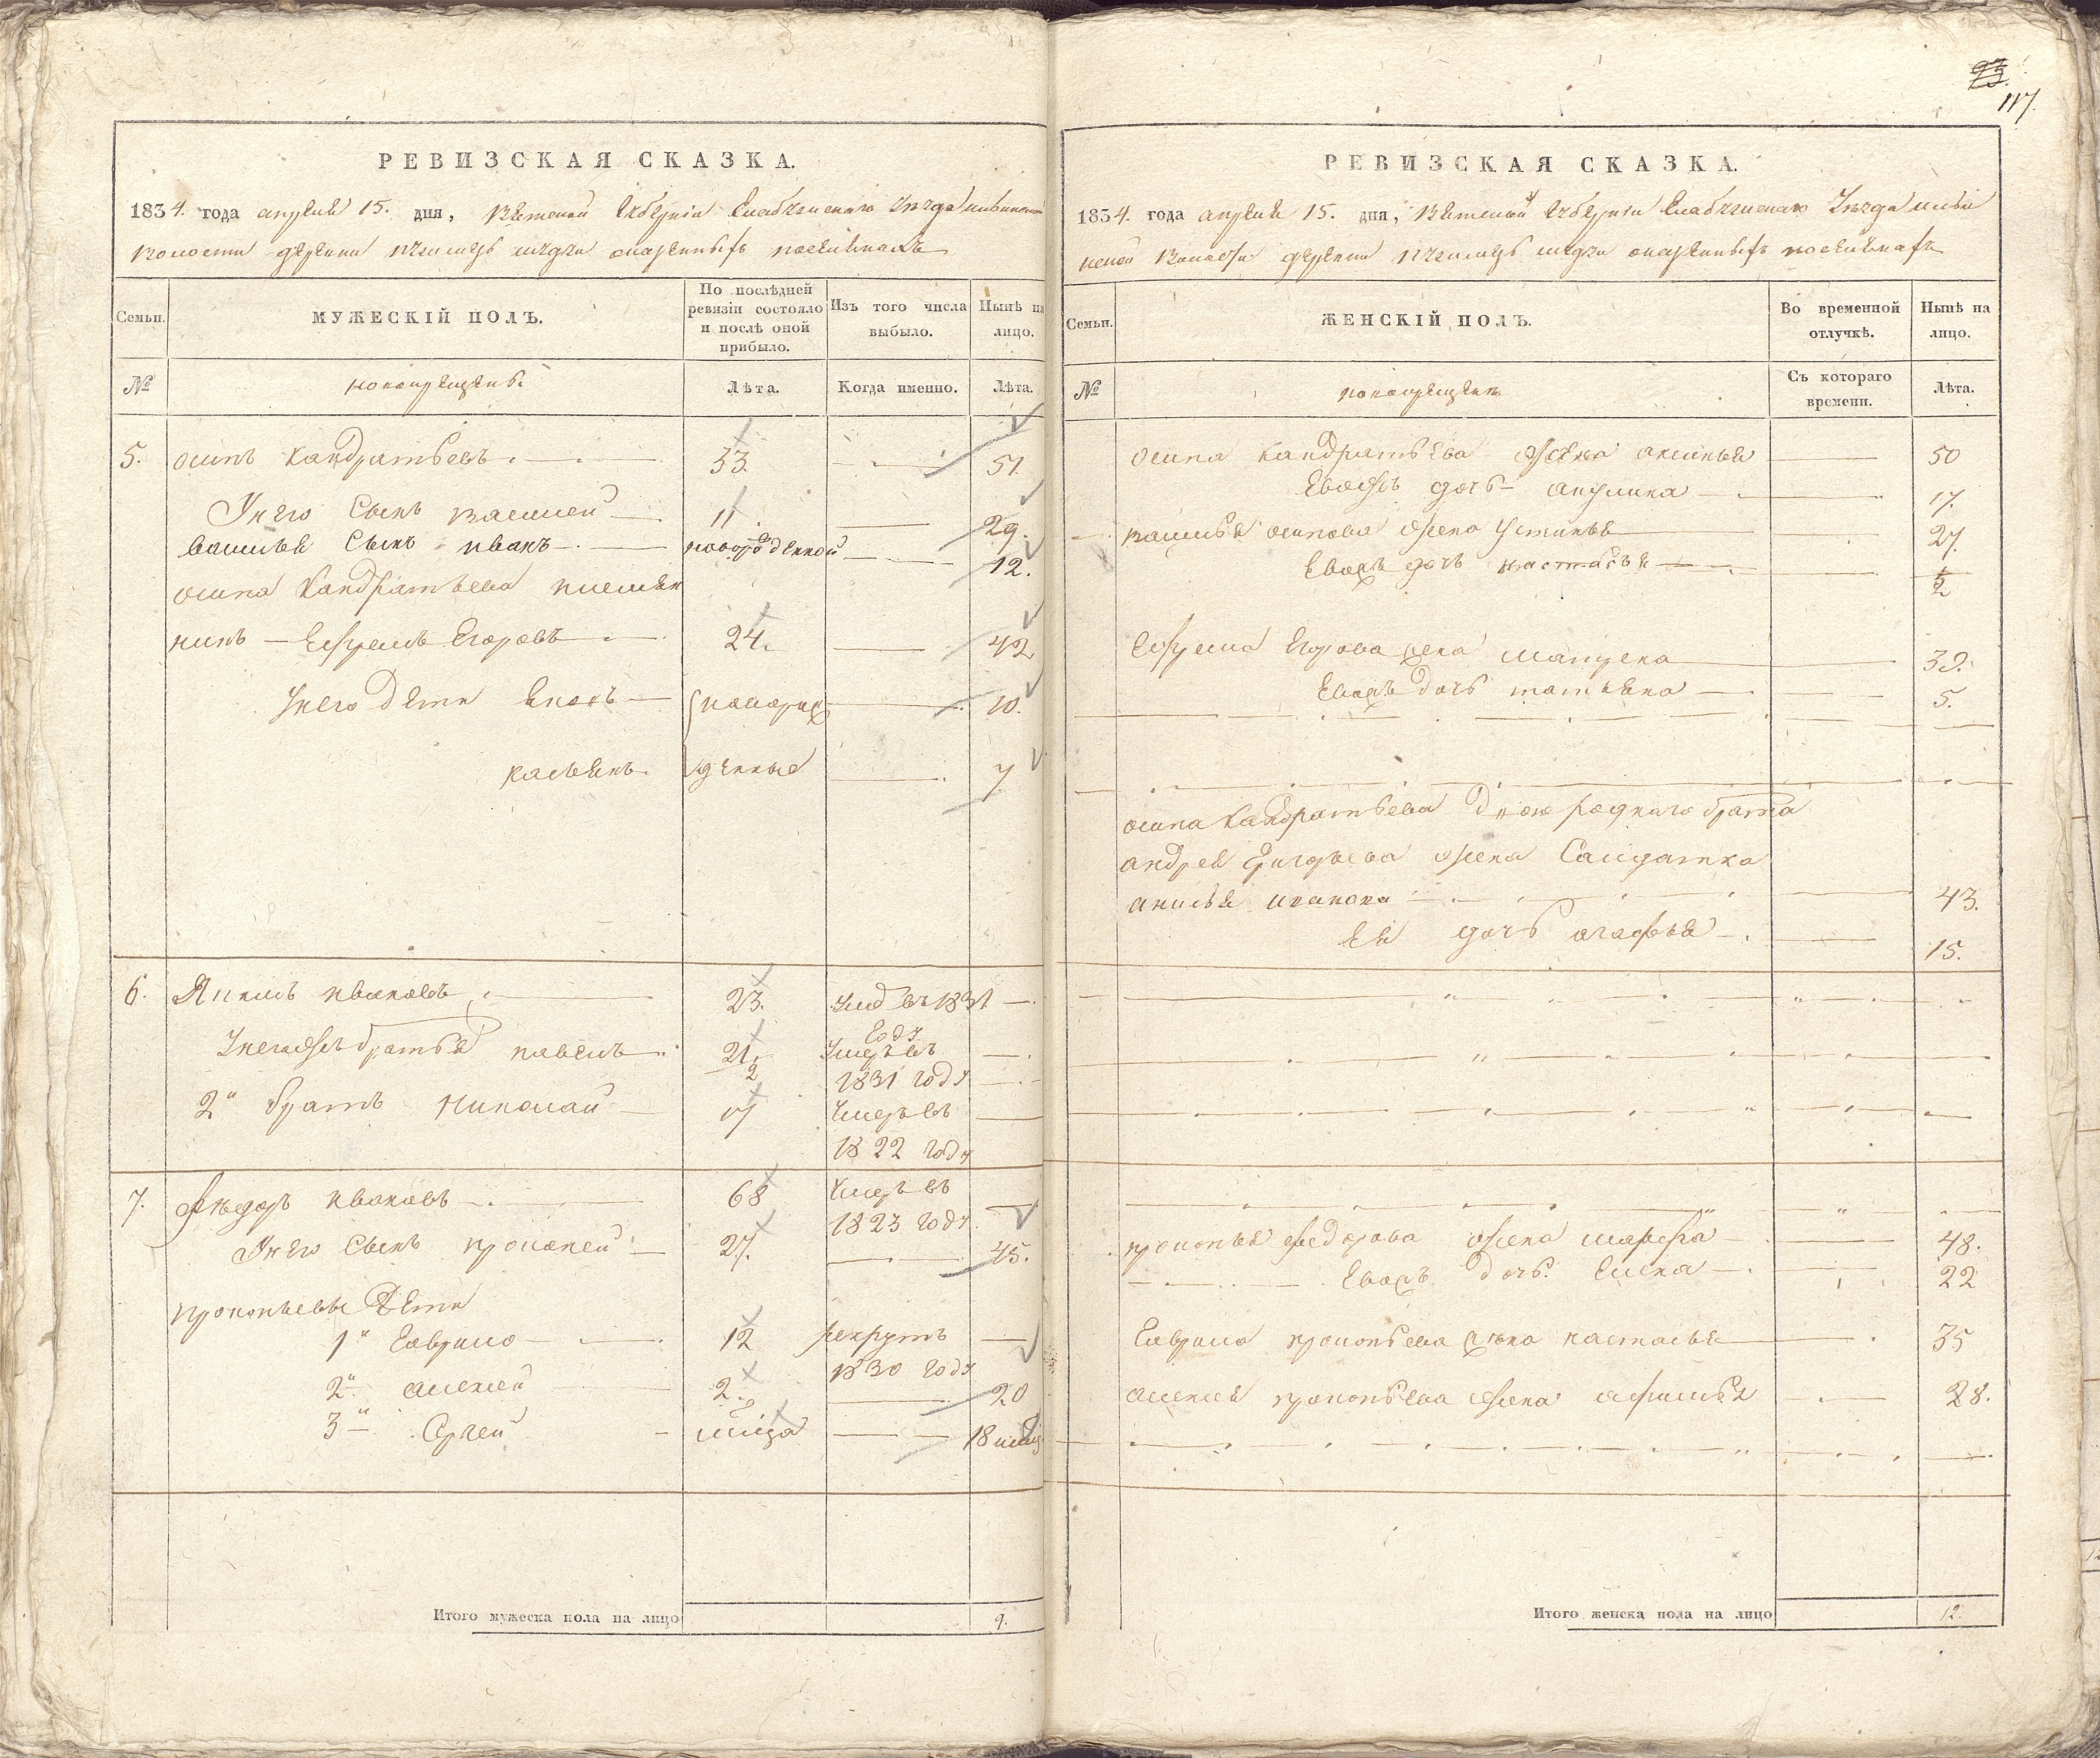 РЕВИЗСКАЯ СКАЗКА.
1834. года апреля 15. дня, Вятской Губернiи Елабужскаго Уезда
волости деревни
Семьи.
МУЖЕСКІЙ ПОЛЪ.
По послѣдней ревизіи состояло и послѣ оной прибыло.
Изъ того числа выбыло.
Нынѣ на лицо.
№
новокрещены
Лѣта.
Когда именно.
Лѣта.
5. осипъ Кандратьевъ 53. 51.
У него сынъ василей 11. 29.
василья сынъ иванъ новорожденной 12.
осипа Кандратьева племян
никъ Ефремъ Егоровъ 24. 42
У него дети 10.
7
6. Якимъ ивановъ 23. въ 1831
году
У него же братья павелъ 21 1/2 умеръ въ
1831 году
2й братъ Николай 17 умеръ въ
1822 году
7. Федоръ ивановъ 68 умеръ въ
1823 году
У него сынъ прокопей 27. 45.
прокопьевы дети
1й Гаврило 12 рекрутъ
1830 году
2й алексей 2. 20
3й Сергей 18
Итого мужеска пола на лицо 9.
93.
117.
РЕВИЗСКАЯ СКАЗКА.
1834. года апреля 15. дня, Вятской Губернiи Елабужскаго Уезда
волости деревни
Семьи.
ЖЕНСКІЙ ПОЛЪ.
Во временной отлучкѣ.
Нынѣ на лицо.
№
новокрещены
Съ котораго времени.
Лѣта.
осипа Кандратьева жена аксинья 50
Ево жъ дочь 17.
василья осипова жена Устинья 27.
Ево жъ дочь настасья
Ефрема Егорова жена матрена 39.
Ево жъ дочь татьяна 5.
осипа Кандратьева двоюроднаго брата
андрея жена Салдатка
анисья иванова 43.
Ея дочь агафья 15.
прокопья федорова жена марфа 48.
Ево жъ дочь Елена 22
Гаврила прокопьева жена настасья 35
алексея прокопьева жена афимья 28.
Итого женска пола на лицо 12.